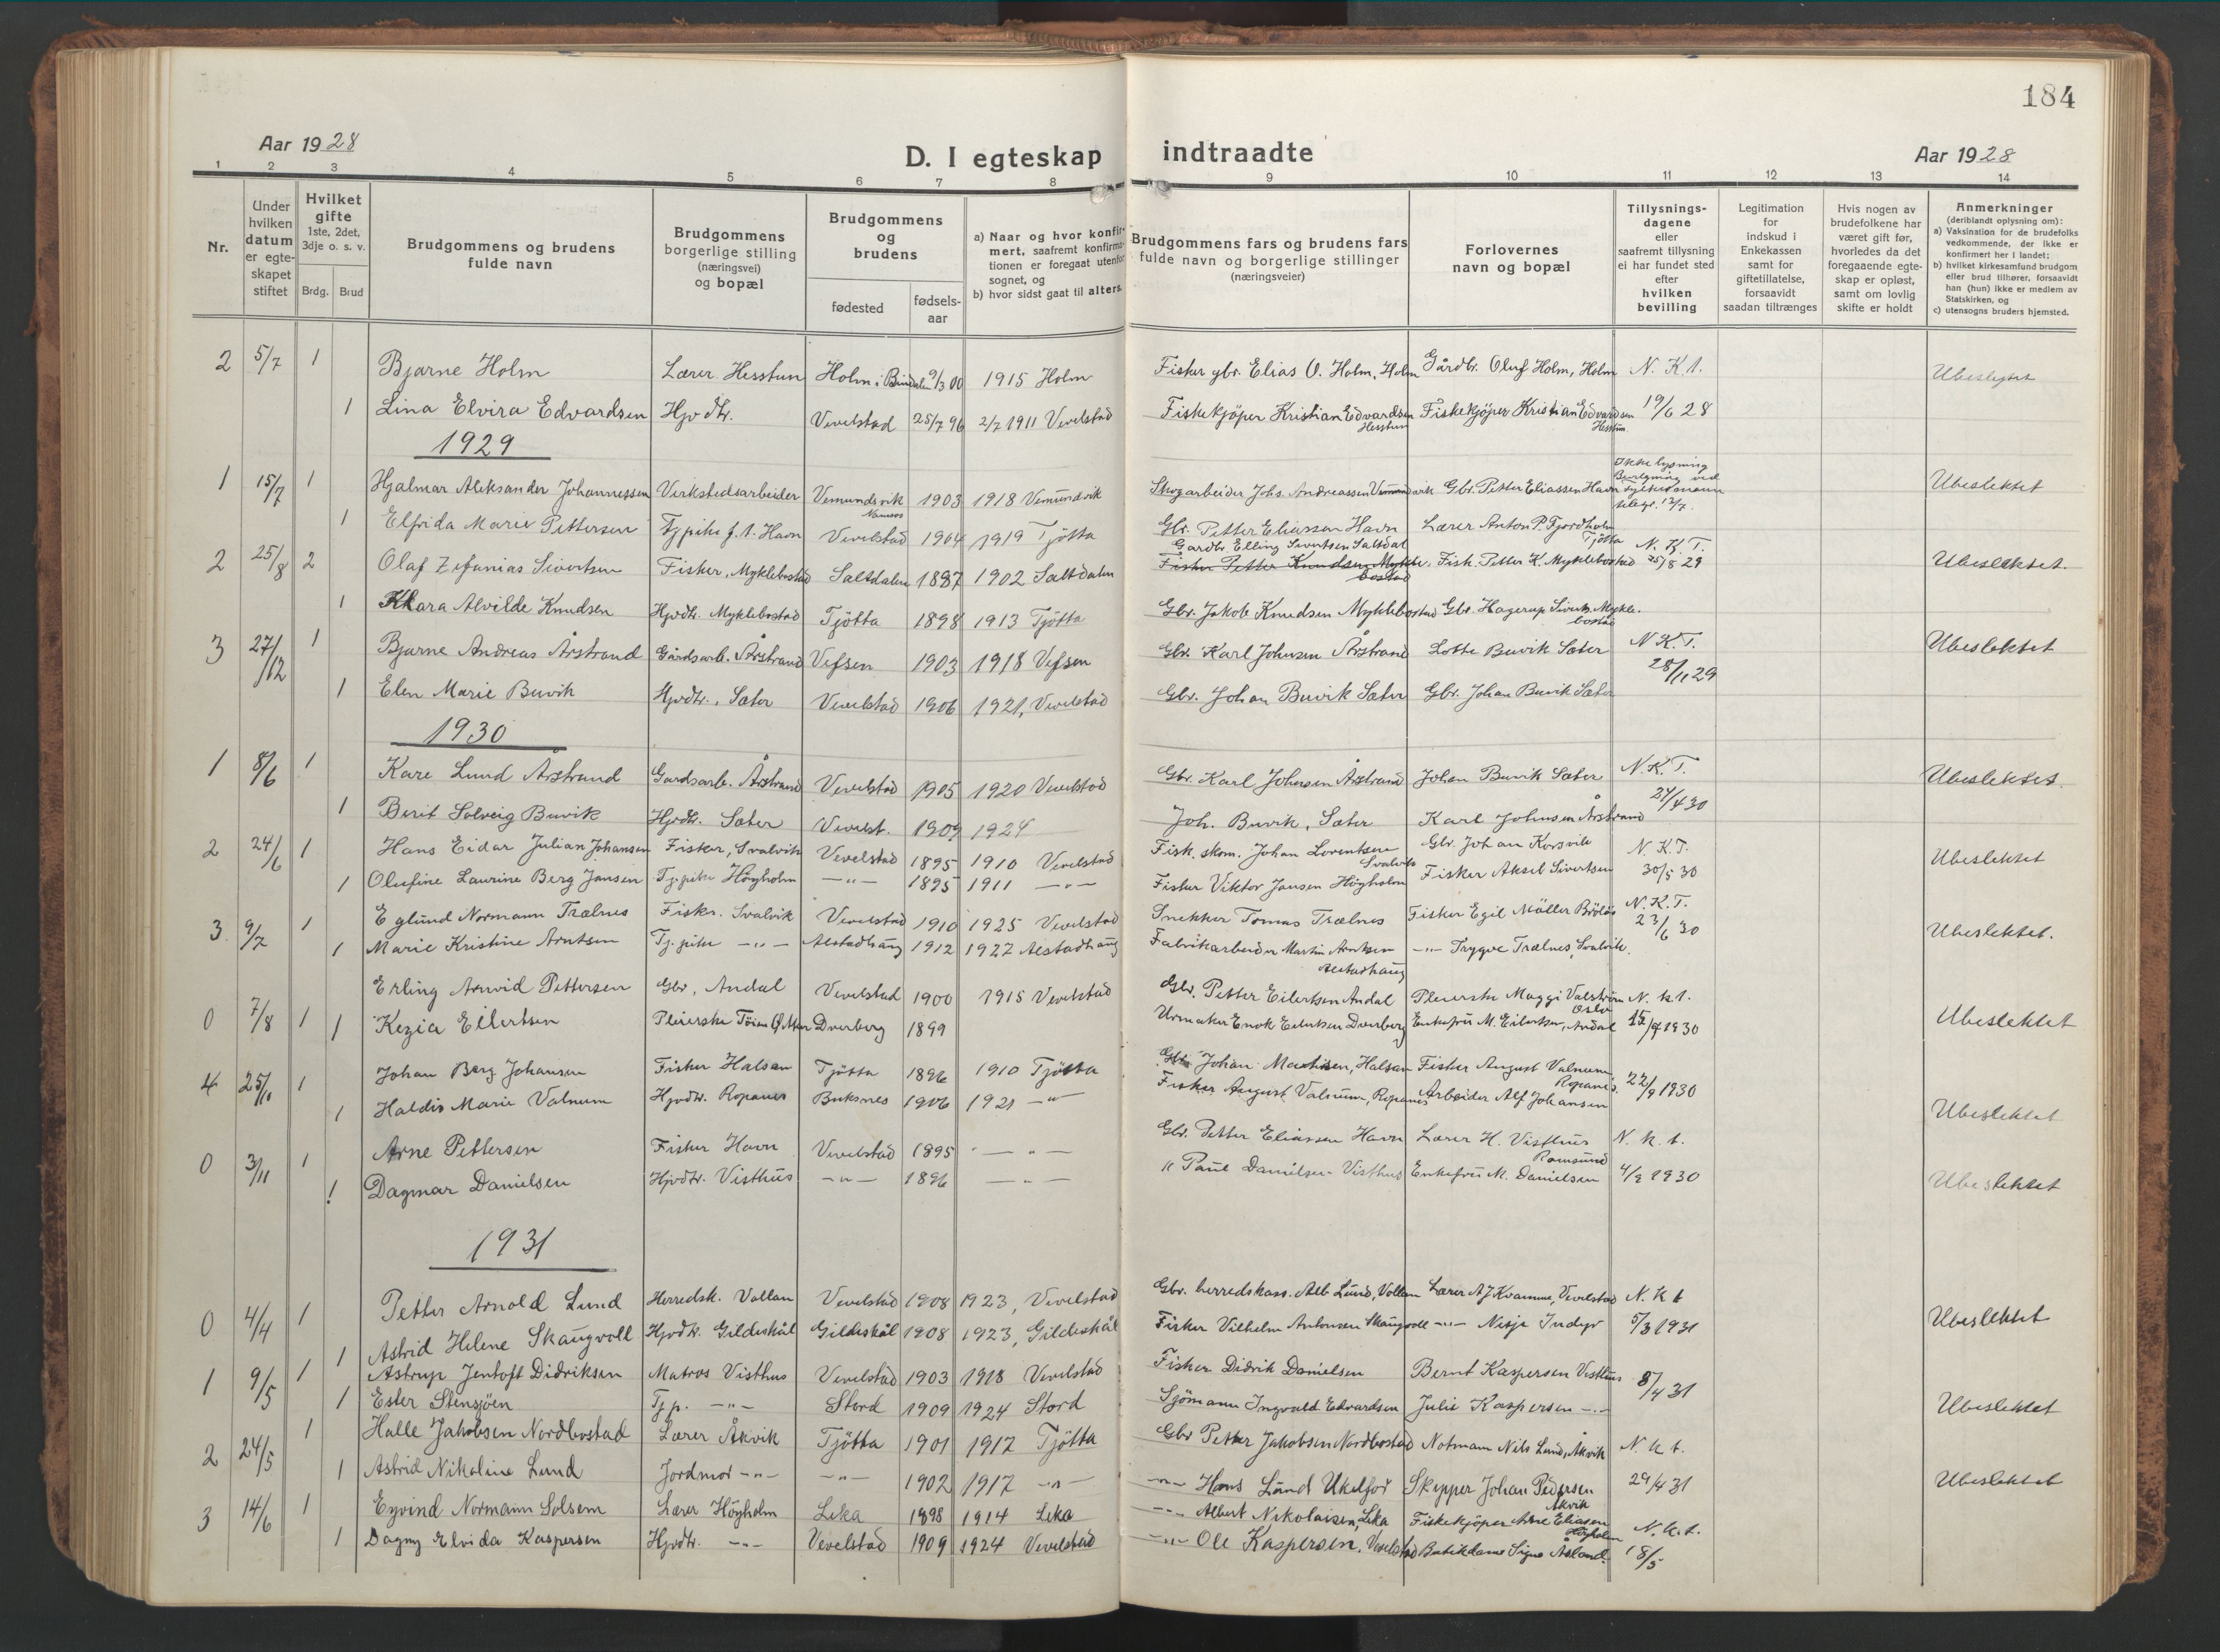 184
Aar 1928
D. I egteskap indtraadte
Aar 1928
1 2 3 4 5 6 7 8 9 10 11 12 13 14
Nr.
Under hvilken datum er egte-skapet stiftet
Hvilket gifte 1ste, 2det, 3dje o. s. v.
Brdg. Brud
Brudgommens og brudens fulde navn
Brudgommens borgerlige stilling (næringsvei) og bopæl
Brudgommens og brudens
fødested
fødsels-aar
a) Naar og hvor konfir-mert, saafremt konfirma-tionen er foregaat utenfor sognet, og
b) hvor sidst gaat til alters.
Brudgommens fars og brudens fars fulde navn og borgerlige stillinger (næringsveier)
Forlovernes navn og bopæl
Tillysnings-dagene eller saafremt tillysning ei har fundet sted efter hvilken bevilling
Legitimation for indskud i Enkekassen samt for giftetillatelse, forsaavidt saadan tiltrænges
Hvis nogen av brudefolkene har været gift før, hvorledes da det foregaaende egte-skap er opløst, samt om lovlig skifte er holdt
Anmerkninger (deriblandt oplysning om):
a) Vaksination for de brudefolks vedkommende, der ikke er konfirmert her i landet;
b) hvilket kirkesamfund brudgom eller brud tilhører, forsaavidt han (hun) ikke er medlem av Statskirken, og
c) utensogns bruders hjemsted.
2 5/7 1 Bjarne Holm Lærer Hesstun Holm i Bindalen 9/3 00 1915 Holm Fisker gbr. Elias O. Holm, Holm Gårdbr. Oluf Holm, Holm N. K. t. Ubeslegtet
1 Lina Elvira Edvardsen Hjvdtr. Vevelstad 25/7 96 2/7 1911 Vevelstad Fiskekjöper Kristian Edvardsen Hesstun Fiskekjöper Kristian Edvardsen Hesstun 19/6 28
1929
1 15/7 1 Hjalmar Aleksander Johannessen Verkstedsarbeider Vemundvik Namsos 1903 1918 Vemundvik Skogarbeider Johs. Andreassen Vemundvik Gbr. Petter Eliassen Havn Ikke lysning Bevilgning ved Fylkesmann telegr. 12/7. Ubeslektet
1 Elfrida Marie Pettersen Tjpike f. t. Havn Vevelstad 1904 1919 Tjötta Gbr. Petter Eliassen Havn Lærer Anton P. Fjordholm Tjötta
2 25/8 2 Olaf Zefanias Sivertsen Fisker, Myklebostad Saltdalen 1887 1902 Saltdalen Gardbr. Elling Sivertsen Saltdal Fisker Petter Knudsen Myklebostad Fisk. Petter K. Myklebostad N. K. T. 25/8 29 Ubeslektet.
1 Klara Alvilde Knudsen Hjvdtr. Myklebostad Tjötta 1898 1913 Tjötta Gbr. Jakob Knudsen Myklebostad Gbr. Hagerup Sivertz. Myklebostad
3 27/12 1 Bjarne Andreas Årstrand Gårdsarb. Årstrand Vefsen 1903 1918 Vefsen Gbr. Karl Johnsen Årstrand Lotte Buvik Sæter N. K. T. Ubeslektet
1 Elen Marie Buvik Hjvdtr., Sæter Vevelstad 1906 1921, Vevelstad Gbr. Johan Buvik Sæter Gbr. Johan Buvik Sæter 28/11 29
1930
1 8/6 1 Kare Lund Årstrand Gardsarb. Årstrand Vevelstad 1905 1920 Vevelstad Gbr. Karl Johnsen Årstrand Johan Buvik Sæter N. K. T. Ubeslektet.
1 Berit Solveig Buvik Hjvdtr. Sæter Vevelst. 1909 1924 Joh. Buvik, Sæter Karl Johnsen Årstrand 27/4 30
2 24/6 1 Hans Eidar Julian Johansen Fisker, Svalvik Vevelstad 1895 1910 Vevelstad Fisk. skom. Johan Lorentsen Svalvik Gbr. Johan Korsvik N. K. T. Ubeslektet
1 Olufine Laurine Berg Jansen Tjpike Höyholm —"— 1895 1911 —"— Fisker Viktor Jansen Höyholm Fisker Aksel Sivertsen 30/5 30
3. 9/7 1 Eglund Normann Trælnes Fisker. Svalvik Vevelstad 1910 1925 Vevelstad Snekker Tomas Trælnes Fisker Egil Möller Bröløs N. K. T. Ubeslektet.
1 Marie Kristine Arntsen Tj. pike —"— Alstadhaug 1912 1927 Alstadhaug Fabrikarbeider Martin Arntsen Alstadhaug —"— Trygve Trælnes, Svalvik. 23/6 30
0 7/8 1 Erling Arnvid Pettersen Gbr, Andal Vevelstad 1900 1915 Vevelstad Gbr. Petter Eilertsen Andal Pleierske Maggi Valström Oslo N. k. t.
1 Kezia Eilertsen Pleierske Dverberg 1899 Urmaker Enok Eilertsen Dverberg Enkefru M. Eilertsen, Andal 1930 Ubeslektet
4 25/10 1 Johan Berg Johansen Fisker Halsan Tjötta 1896 1910 Tjøtta Johan Martinsen, Halsan Fisker August Valnum, Ropanes. 22/9 1930
1 Haldis Marie Valnum Hjvdtr. Ropanes Buksnes 1906 1921 —"— Fisker August Valnum, Ropanes Arbeider Alf Johansen Ubeslektet
0 3/11 1 Arne Pettersen Fisker Havn Vevelstad 1895 — " — Gbr. Petter Eliassen Havn Lærer H. Visthus Ramsund N. k. t.
1 Dagmar Danielsen Hjvdtr. Visthus —"— 1896 — " — " Paul Danielsen Visthus Enkefru M. Danielsen 4/9 1930 Ubeslektet
1931
0 4/4 1 Petter Arnold Lund Herredsk. Vallan Vevelstad 1908 1923, Vevelstad Gbr. herredskass. Alb Lund, Vollan Lærer A J Kvamme, Vevelstad N. k t Ubeslektet
1 Astrid Helene Skaugvoll Hjvdtr. Gildeskål Gildeskål 1908 1923, Gildeskål Fisker Vilhelm Antonsen Skaugvoll —"— Indyr 5/3 1931
1 9/5 1 Astrup Jentoft Didriksen Matros Visthus Vevelstad 1903 1918 Vevelstad Fisker Didrik Danielsen Bernt Kaspersen Visthus 8/4 31
1 Ester Stensjöen Tjp. —"— Stord 1909 1924 Stord Sjömann Ingvald Edvardsen Julie Kaspersen —"— Ubeslektet
2 24/5 1 Halle Jakobsen Nordbostad Lærer Åkvik Tjötta 1901 1917 Tjötta Gbr Petter Jakobsen Nordbostad Notmann Nils Lund, Åkvik N. k t.
1 Astrid Nikoline Lund Jordmor —"— —"— 1902 1917 —"— —"— Hans Lund Skipper Johan Pedersen Åkvik 29/4 31 Ubeslektet
3 14/6 1 Eyvind Normann Solsem Lærer Höyholm Leka 1898 1914 Leka —"— Albert Nikolaisen, Leka Fiskekjöper Arne Eliasen Höyholm N. k. t.
1 Dagny Elvida Kaspersen Hjvdtr. —"— Vevelstad 1909 1924 Vevelstad —"— Ole Kaspersen, Vevelstad Butikdame Signe Åsland. 18/5